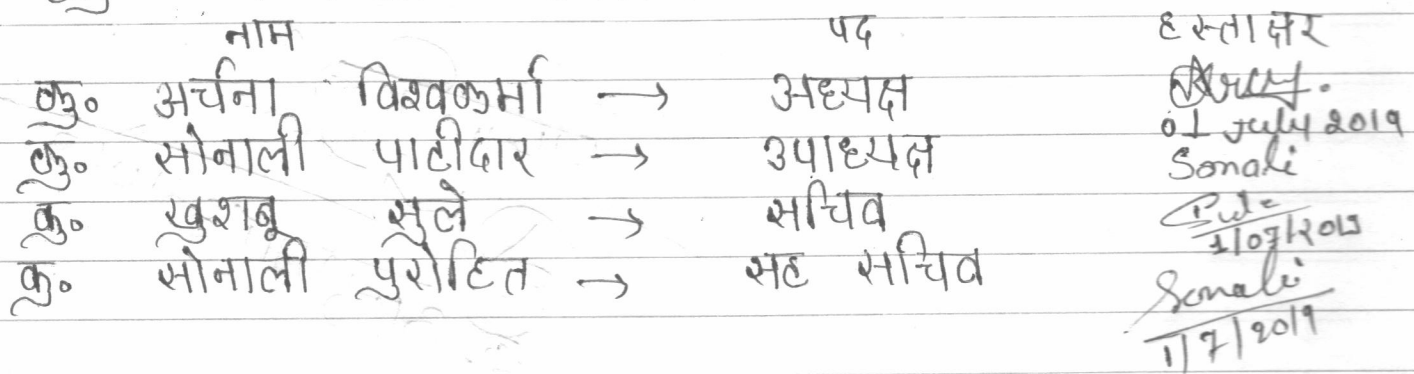 नाम पद हस्ताक्षर
कु० अर्चना विश्वकर्मा → अध्यक्ष
01 July 2019
कु० सोनाली पाटीदार → उपाध्यक्ष Sonali
कु० खुशबू सुले → सचिव
1/07/2019
कु० सोनाली पुरोहित → सह सचिव Sonali
1/7/2019